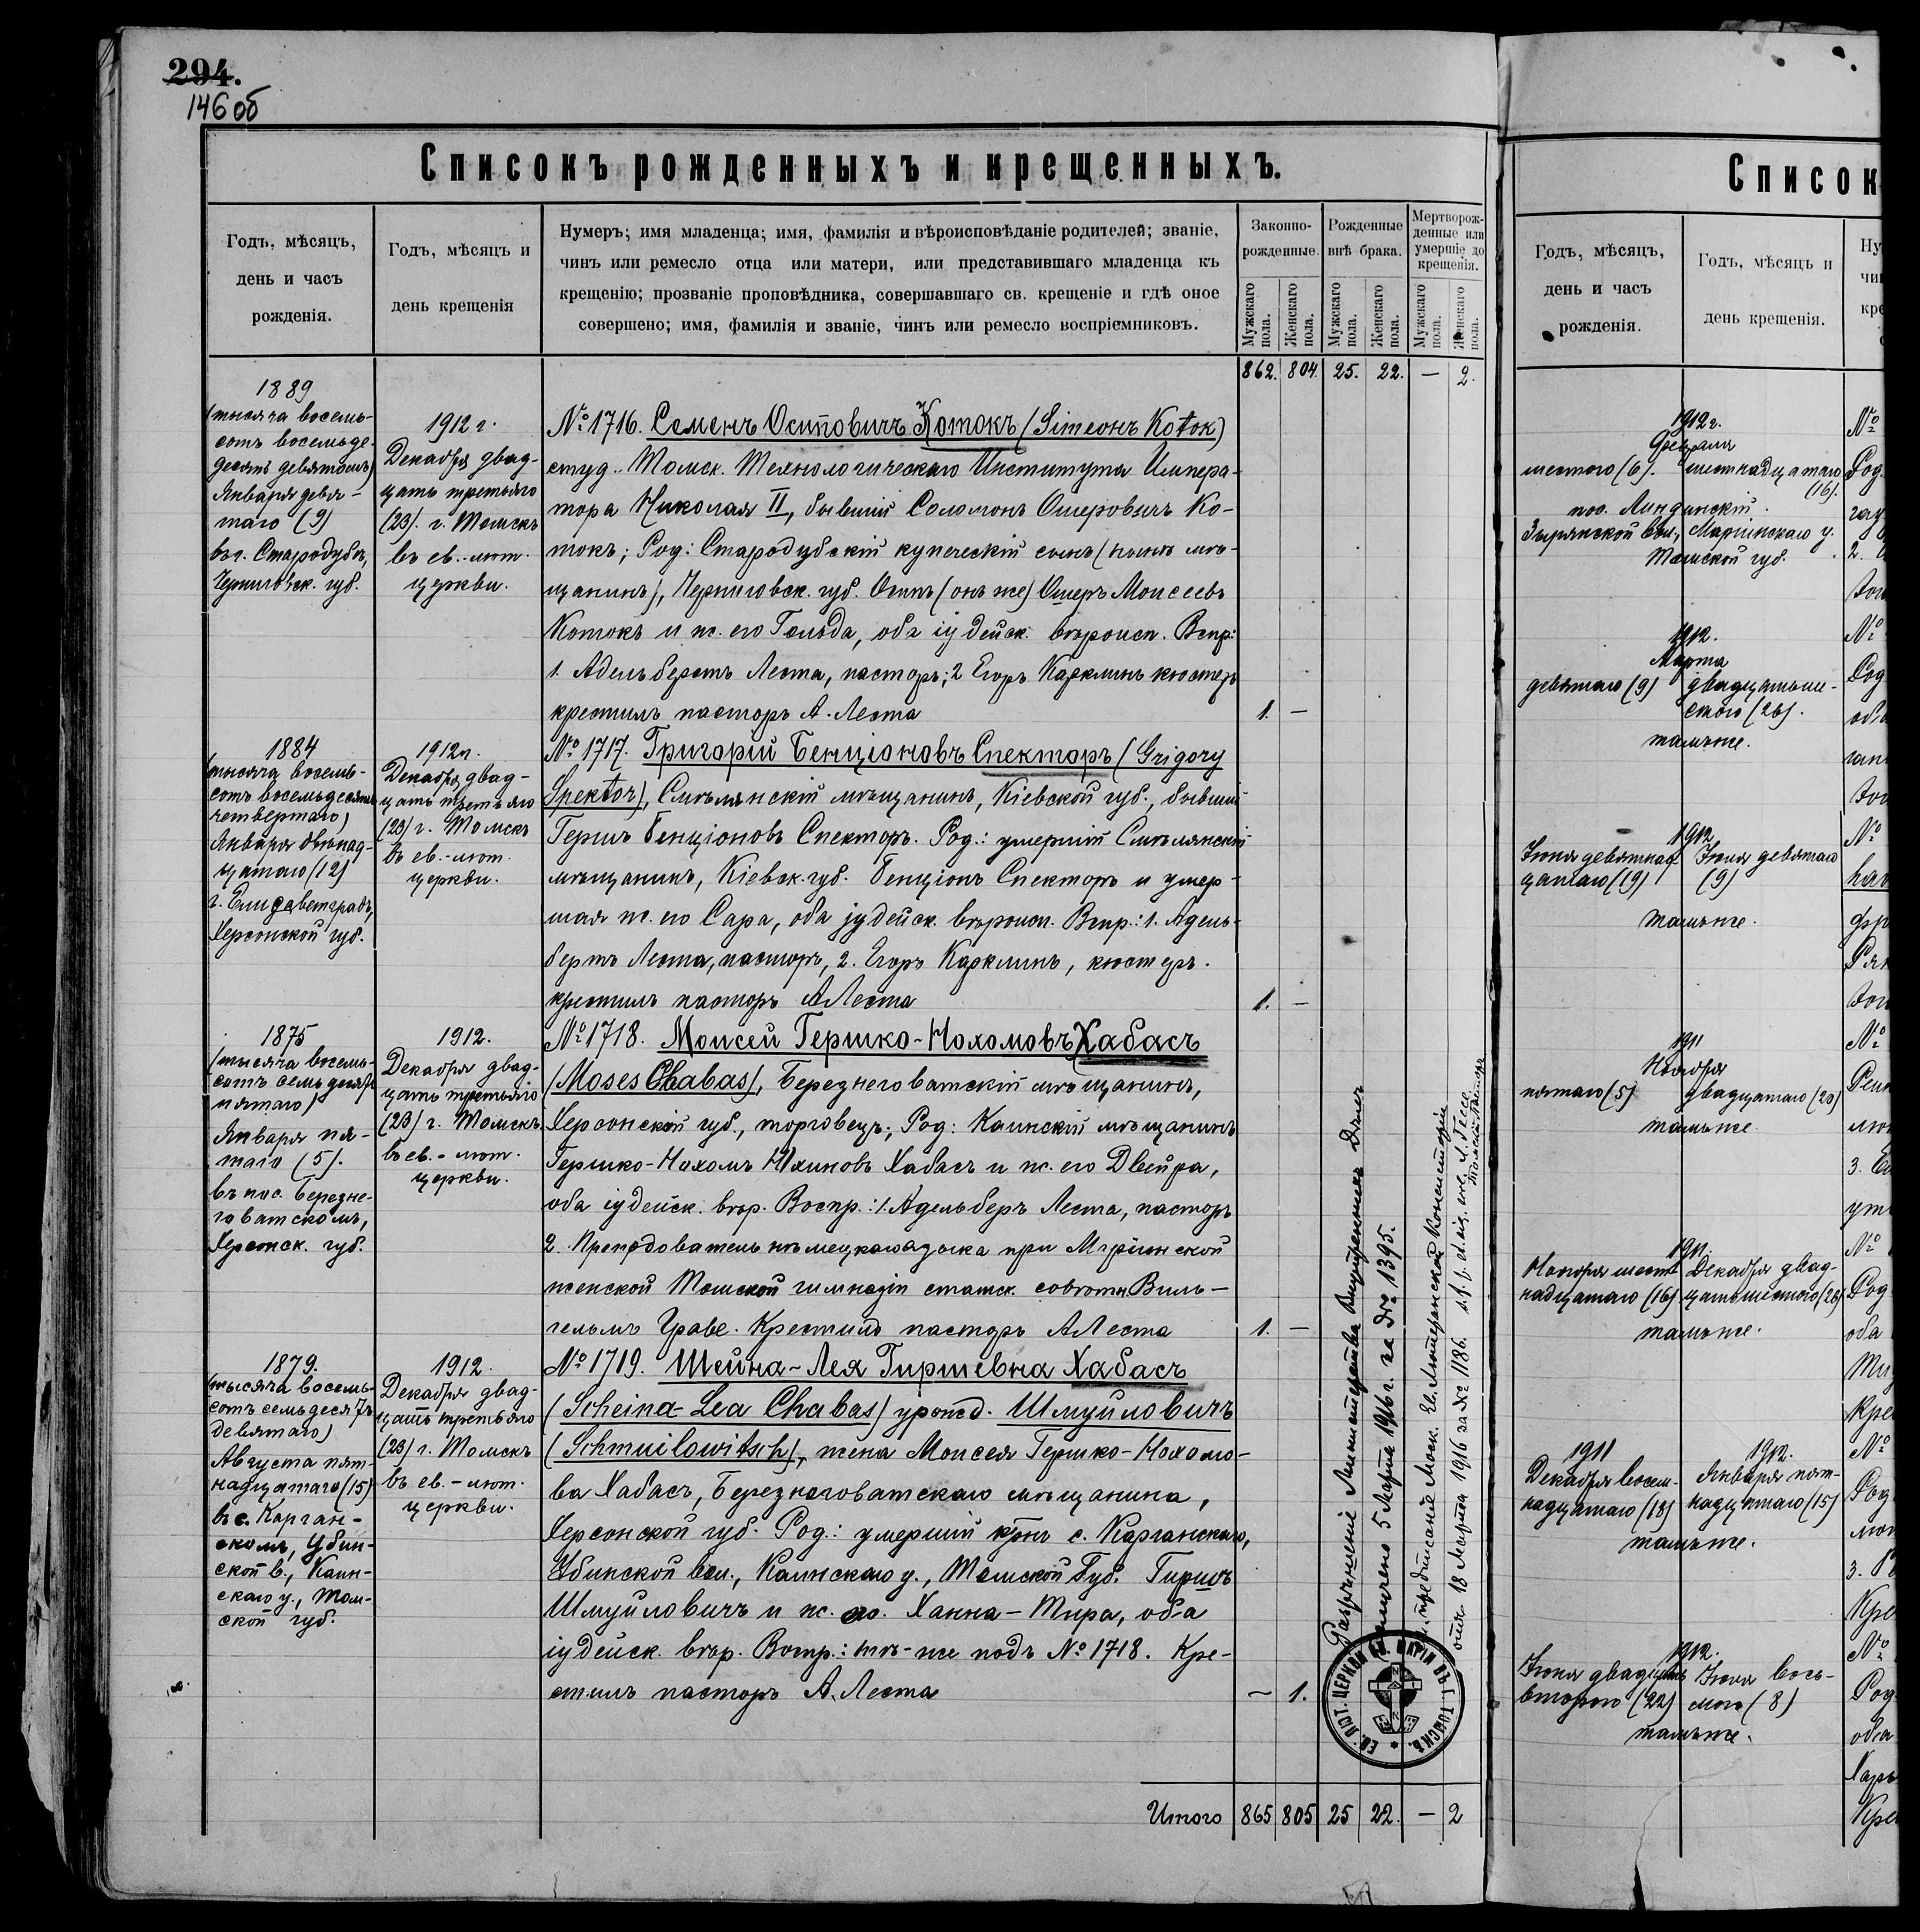 294.
146 об
Списокъ рожденныхъ и крещенныхъ.
Годъ, мѣсяцъ,
день и часъ
рожденія.
Годъ, мѣсяцъ и
день крещенія
Нумеръ; имя младенца; имя, фамилія и вѣроисповѣданіе родителей; званіе,
чинъ или ремесло отца или матери, или представившаго младенца къ
крещенію; прозваніе проповѣдника, совершавшаго св. крещеніе и гдѣ оное
совершено; имя, фамилія и званіе, чинъ или ремесло воспріемниковъ.
Законно-
рожденные.
Рожденные
внѣ брака.
Мертворож-
денные или
умершіе до
крещенія.
Мужскаго пола.
Женскаго пола.
Мужскаго пола.
Женскаго пола.
Мужскаго пола.
Женскаго пола.
862. 804. 25. 22. — 2.
1889
(тысяча восемь-
сотъ восемьде-
десять девятомъ)
Января девя-
таго (9)
въ г. Стародубѣ,
Черниговск. губ.
1912 г.
Декабря двад-
цать третьяго
(23). г. Томскъ
въ ев.-лют.
церкви.
№ 1716. Семенъ Осиповичъ Котокъ (Simeонъ Kotok)
студ. Томск. Технологическаго Института Импера-
тора Николая II, бывшій Соломонъ Ошеровичъ Ко-
токъ; Род: Стародубскій купеческій сынъ (нынѣ мѣ-
щанинъ), Черниговск. губ. Осипъ (онъ же) Ошеръ Моисеевъ
Котокъ и ж. его Гольда, оба іудейск. вѣроисп. Вспр:
1. Адельбертъ Леста, пасторъ; 2 Егоръ Карклинъ кюстеръ
крестилъ пасторъ А. Леста
1. —
1884
(тысяча восемь-
сотъ восемьдесятъ
четвертаго)
Января двѣнад-
цатаго (12)
г. Елисаветградъ,
Херсонской губ.
1912 г.
Декабря двад-
цать третьяго
(23) г. Томскъ
въ ев.-лют.
церкви.
№ 1717. Григорій Бенціоновъ Спекторъ (Grigory
Spektor), Смѣлянскій мѣщанинъ, Кіевской губ., бывшій
Гершъ Бенціоновъ Спекторъ. Род.: умершій Смѣлянскій
мѣщанинъ, Кіевск. губ. Бенціонъ Спекторъ и умер-
шая ж. его Сара, оба іудейск. вѣроисп. Вспр.: 1. Адель-
бертъ Леста, пасторъ, 2. Егоръ Карклинъ, кюстеръ.
крестилъ пасторъ А Леста
1. —
1875
(тысяча восемь-
сотъ семьдесятъ
пятаго)
Января пя-
таго (5).
въ пос. Березне-
говатскомъ,
Херсонск. губ.
1912.
Декабря двад-
цать третьяго
(23) г. Томскъ
въ ев.-лют.
церкви.
№ 1718. Моисей Гершко-Нохомовъ Хабасъ
(Moses Chabas), Березнеговатскій мѣщанинъ,
Херсонской губ., торговецъ; Род: Каинскій мѣщанинъ
Гершко-Нохомъ Хабасъ и ж. его Двейра,
оба іудейск. вѣр. Воспр.: 1. Адельберъ Леста, пасторъ
2. Преподователь нѣмецкаго языка при Маріинской
женской Томской гимназіи статск. совѣтн. Виль-
гельмъ Граве. Крестилъ пасторъ А Леста
1. —
1879.
(тысяча восемь-
сотъ семьдесятъ
девятаго)
Августа пят-
надцатаго (15)
въ с. Карган-
скомъ, Убин-
ской в., Каин-
скаго у., Том-
ской губ.
1912.
Декабря двад-
цать третьяго
(23) г. Томскъ
въ ев.-лют.
церкви.
№ 1719. Шейна-Лея Гиршевна Хабасъ
(Scheina-Lea Chabas) урожд. Шмуйловичъ
(Schmuilowitsch), жена Моисея Гершко-Нохомо-
ва Хабасъ, Березнеговатскаго мѣщанина,
Херсонской губ. Род.: умершій крнъ с. Карганскаго,
Убинской вол., Каинскаго у., Томской губ. Гиршъ
Шмуйловичъ и ж. его. Ханна-Мира, оба
іудейск. вѣр. Вспр.: тѣ-же подъ № 1718. Кре-
стилъ пасторъ А. Леста
— 1.
Разрѣшеніе Министерства Внутреннихъ Дѣлъ
получено 5 Марта 1916 г. за № 1395.
предписаніе Моск. Ев. Лютеранской Консисторіи
отъ 18 Марта 1916 за № 1186.
ЕВ. ЛЮТ. ЦЕРКВИ СВ. МАРІИ ВЪ Г. ТОМСКѢ.
Итого 865 805 25 22. — 2
Список
Годъ, мѣсяцъ,
день и часъ
рожденія.
Годъ, мѣсяцъ и
день крещенія.
Ну
чи
кре
1912 г.
Февраля
шестого (6). шестнадцатаго
(16).
пос. Линдинскій
Зырянской вол., Маріинскаго у.
Томской губ.
1912.
Марта
девятаго (9) двадцать ше-
стого (26).
тамъ же.
1912
Іюня девятнад- Іюня девятаго
цатаго (19) (9)
тамъ же.
1911
Ноября
пятаго (5) двадцатаго (20)
тамъ же
1911.
Ноября шест- Декабря двад-
надцатаго (16) цать шестого (26)
тамъ же.
1911 1912.
Декабря восем- Января пят-
надцатаго (18) надцатаго (15)
тамъ же.
1912.
Іюня двадцать Іюня вось-
второго (22) мого (8)
тамъ же.